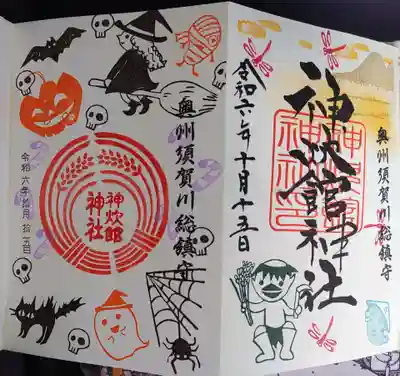 奥州須賀川総鎮守
神炊館
神社
令和六年拾月拾五日
奥州須賀川総鎮守
神炊館神社
令和六年十月十五日